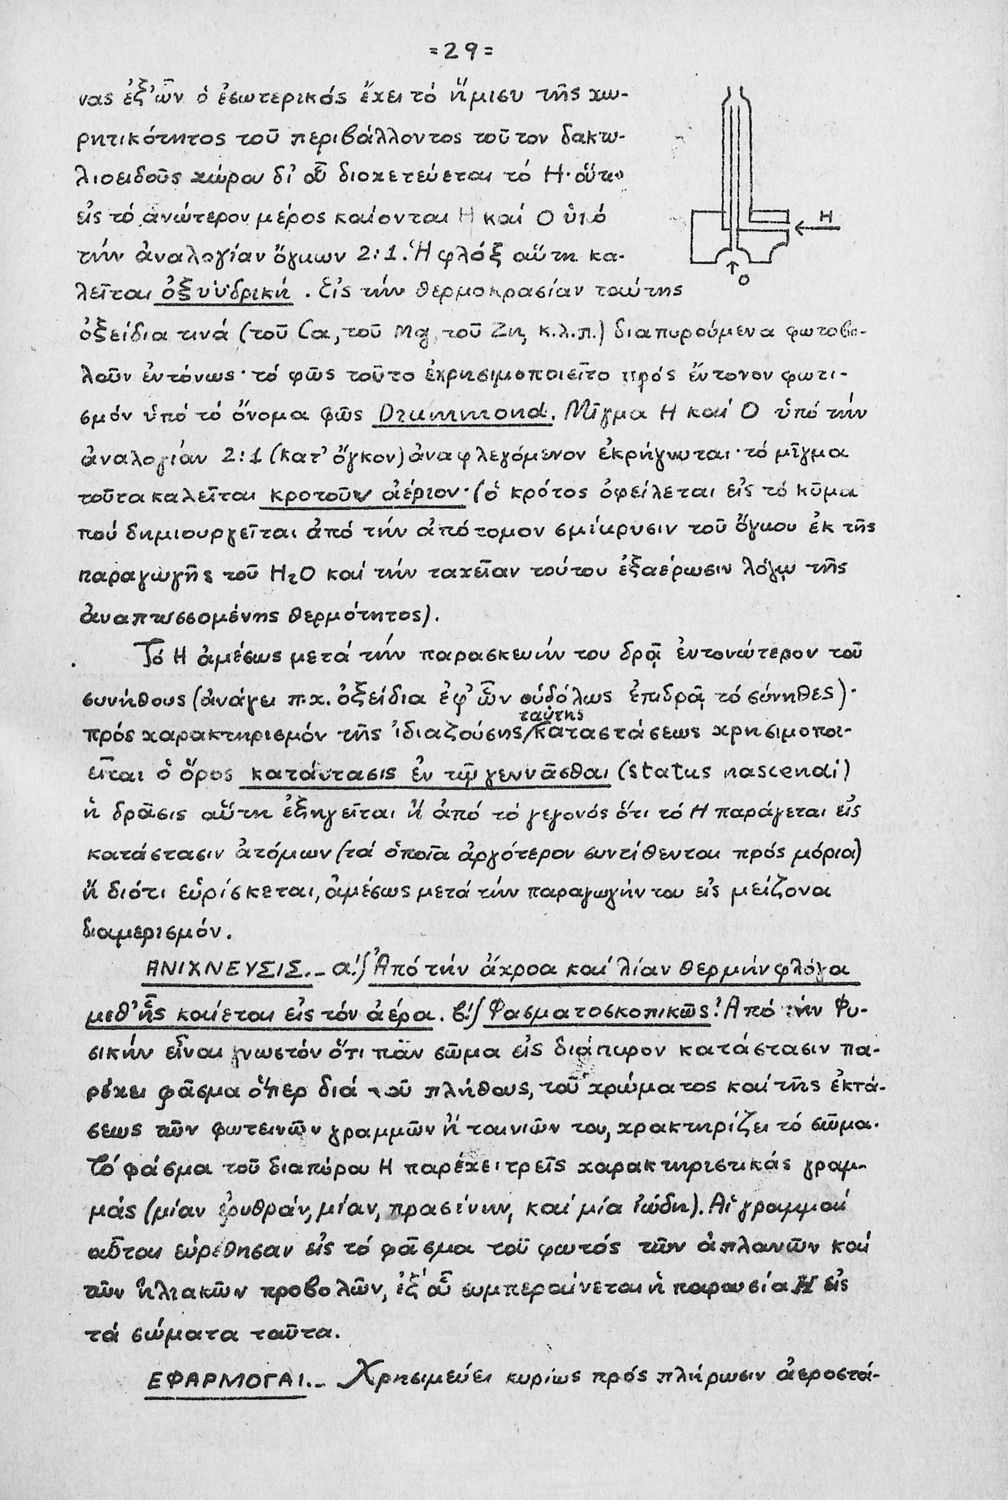 =29=
νας ἐξ ὧν ὁ ἐσωτερικός ἔχει τό ἥμισυ τῆς χω-
ρητικότητος τοῦ περιβάλλοντος τοῦτον δακτυ-
λιοειδοῦς χώρου δι' οὗ διοχετεύεται τό Η· οὕτω
εἰς τό ἀνώτερον μέρος καίονται Η καί Ο ὑπό
τήν ἀναλογίαν ὄγκων 2:1. Ἡ φλόξ αὕτη κα-
λεῖται ὀξυϋδρική. Εἰς τήν θερμοκρασίαν ταύτης
ὀξείδια τινά (τοῦ Ca, τοῦ Mg, τοῦ Zn, κ.λ.π.) διαπυρούμενα φωτοβο-
λοῦν ἐντόνως· τό φῶς τοῦτο ἐχρησιμοποιεῖτο πρός ἔντονον φωτι-
σμόν ὑπό τό ὄνομα φῶς Drummond. Μῖγμα Η καί Ο ὑπό τήν
ἀναλογίαν 2:1 (κατ' ὄγκον) ἀναφλεγόμενον ἐκρήγνυται· τό μῖγμα
τοῦτο καλεῖται κροτοῦν ἀέριον· (ὁ κρότος ὀφείλεται εἰς τό κῦμα
πού δημιουργεῖται ἀπό τήν ἀπότομον σμίκρυσιν τοῦ ὄγκου ἐκ τῆς
παραγωγῆς τοῦ H₂O καί τήν ταχεῖαν τούτου ἐξαέρωσιν λόγῳ τῆς
ἀναπτυσσομένης θερμότητος).
Τό Η ἀμέσως μετά τήν παρασκευήν του δρᾷ ἐντονώτερον τοῦ
συνήθους (ἀνάγει π.χ. ὀξείδια ἐφ' ὧν οὐδόλως ἐπιδρᾷ τό σύνηθες)·
πρός χαρακτηρισμόν τῆς ἰδιαζούσης ταύτης καταστάσεως χρησιμοποι-
εῖται ὁ ὅρος κατάστασις ἐν τῷ γεννᾶσθαι (status nascendi)
ἡ δρᾶσις αὕτη ἐξηγεῖται ἤ ἀπό τό γεγονός ὅτι τό Η παράγεται εἰς
κατάστασιν ἀτόμων (τά ὁποῖα ἀργότερον συντίθενται πρός μόρια)
ἤ διότι εὑρίσκεται, ἀμέσως μετά τήν παραγωγήν του εἰς μείζονα
διαμερισμόν.
ΑΝΙΧΝΕΥΣΙΣ.- α!) Ἀπό τήν ἄχροα καί λίαν θερμήν φλόγα
μεθ' ἧς καίεται εἰς τόν ἀέρα. β!) Φασματοσκοπικῶς: Ἀπό τήν Φυ-
σικήν εἶναι γνωστόν ὅτι πᾶν σῶμα εἰς διάπυρον κατάστασιν πα-
ρέχει φᾶσμα ὅπερ διά τοῦ πλήθους, τοῦ χρώματος καί τῆς ἐκτά-
σεως τῶν φωτεινῶν γραμμῶν ἤ ταινιῶν του, χρακτηρίζει τό σῶμα.
Τό φάσμα τοῦ διαπύρου Η παρέχει τρεῖς χαρακτηριστικάς γραμ-
μάς (μίαν ἐρυθράν, μίαν, πρασίνην, καί μία ἰώδη). Αἱ γραμμαί
αὗται εὑρέθησαν εἰς τό φᾶσμα τοῦ φωτός τῶν ἀπλανῶν καί
τῶν ἡλιακῶν προβολῶν, ἐξ οὗ συμπεραίνεται ἡ παρουσία Η εἰς
τά σώματα ταῦτα.
ΕΦΑΡΜΟΓΑΙ.- Χρησιμεύει κυρίως πρός πλήρωσιν ἀεροστά-
Η
Ο